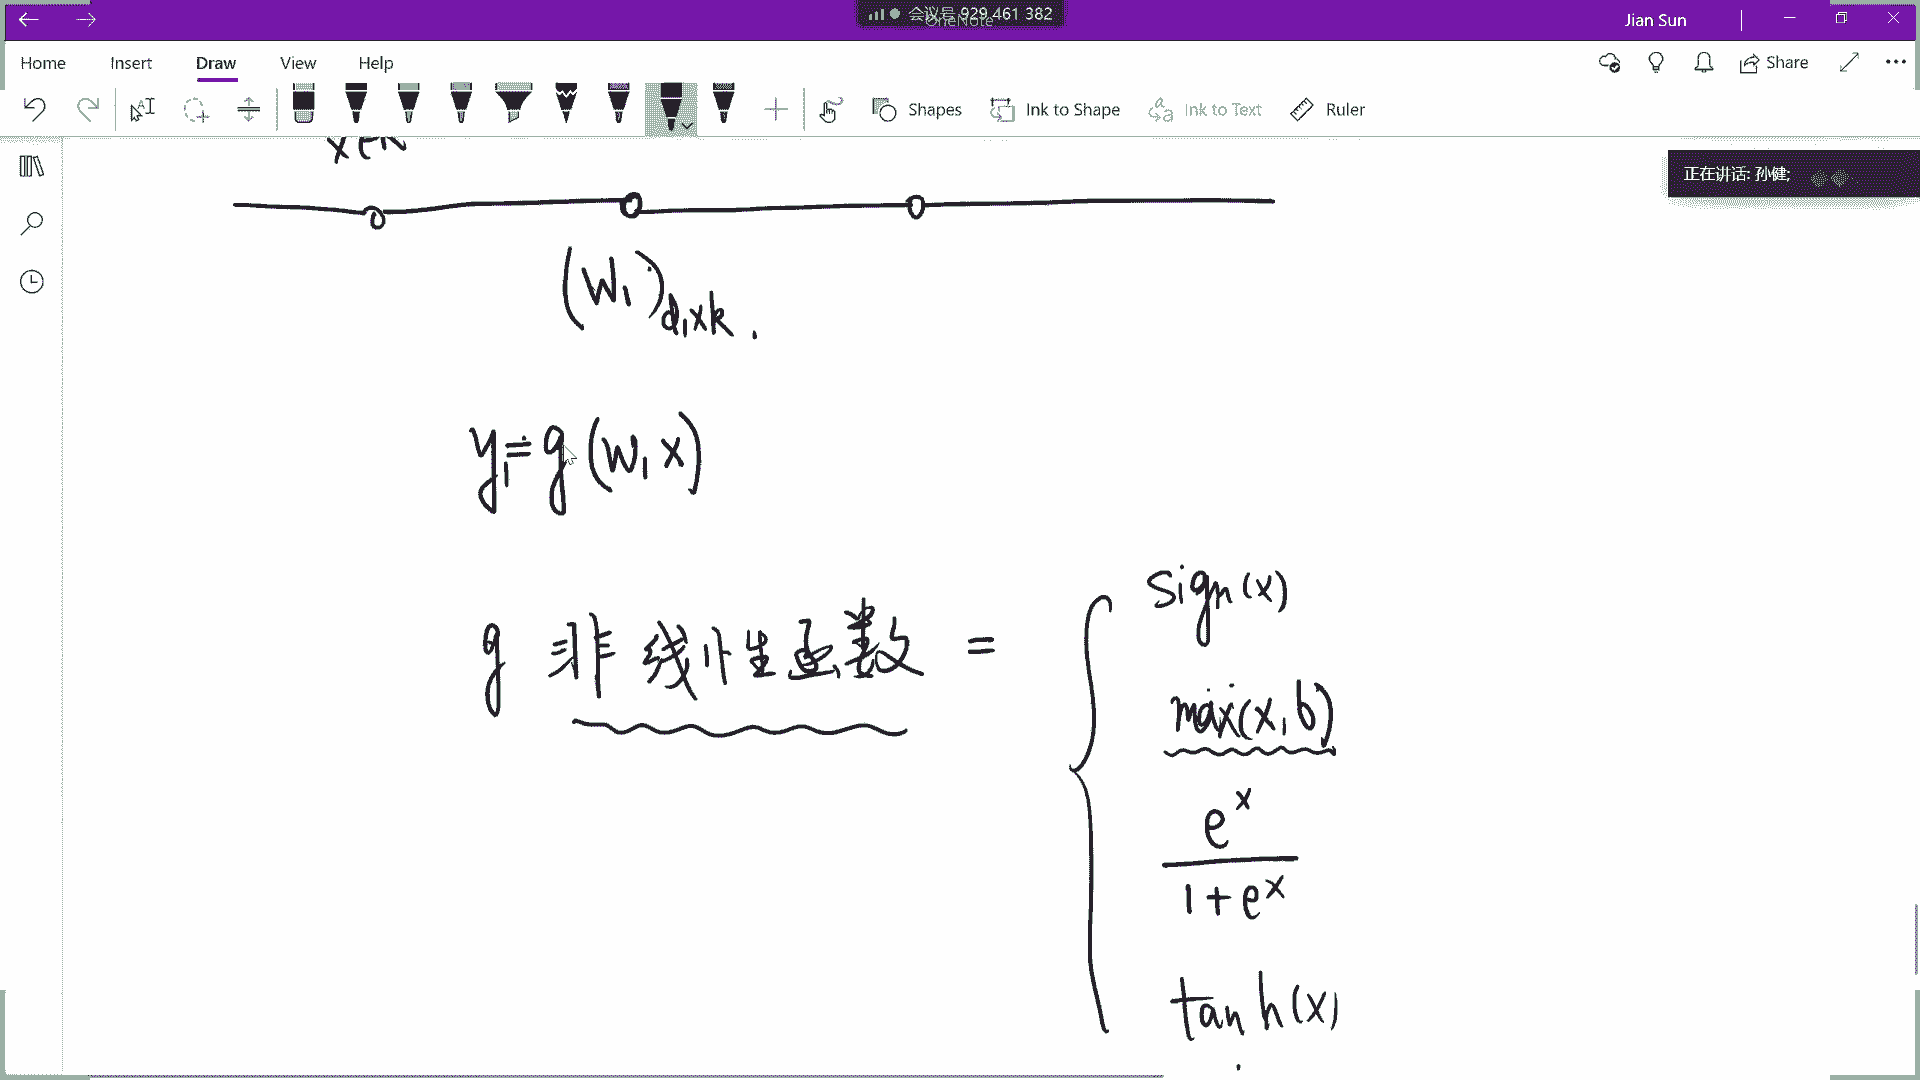 会议号 929 461 382
OneNote
Jian Sun
Home Insert Draw View Help
Share
Shapes Ink to Shape Ink to Text Ruler
正在讲话: 孙健;
(W₁)d₁×k .
y₁ = g(W₁x)
g 非线性函数 =
sign(x)
max(x, b)
e^x
1+e^x
tanh(x)